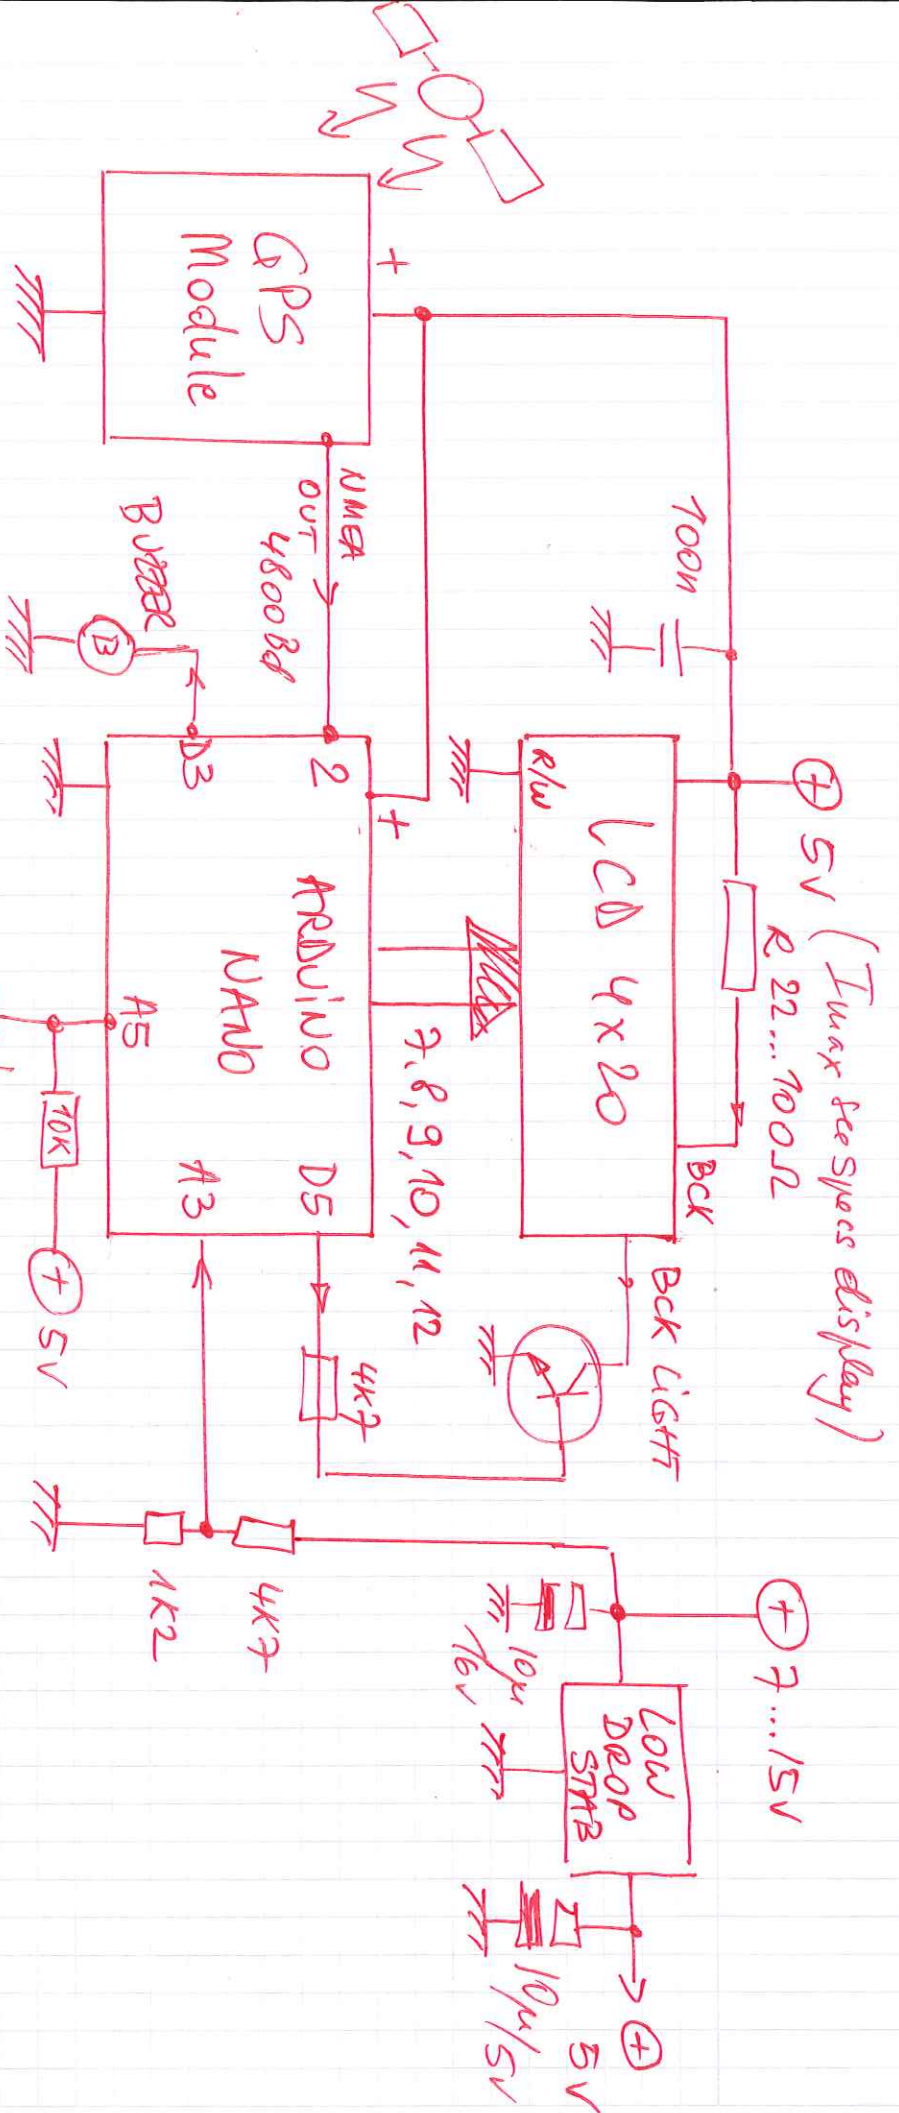 +
GPS
Module
NMEA
OUT
4800Bd
BUZZER
B
100n
+ 5V (Imax see specs display)
R 22...100Ω
BCK
R/W
LCD 4x20
BCK LIGHT
7,8,9,10,11,12
D3
2
+
ARDUiNO
NANO
A5
A3
D5
10K
+ 5V
4K7
4K7
1K2
+ 7...15V
10µ
16V
LOW
DROP
STAB
+
5V
10µ/5V